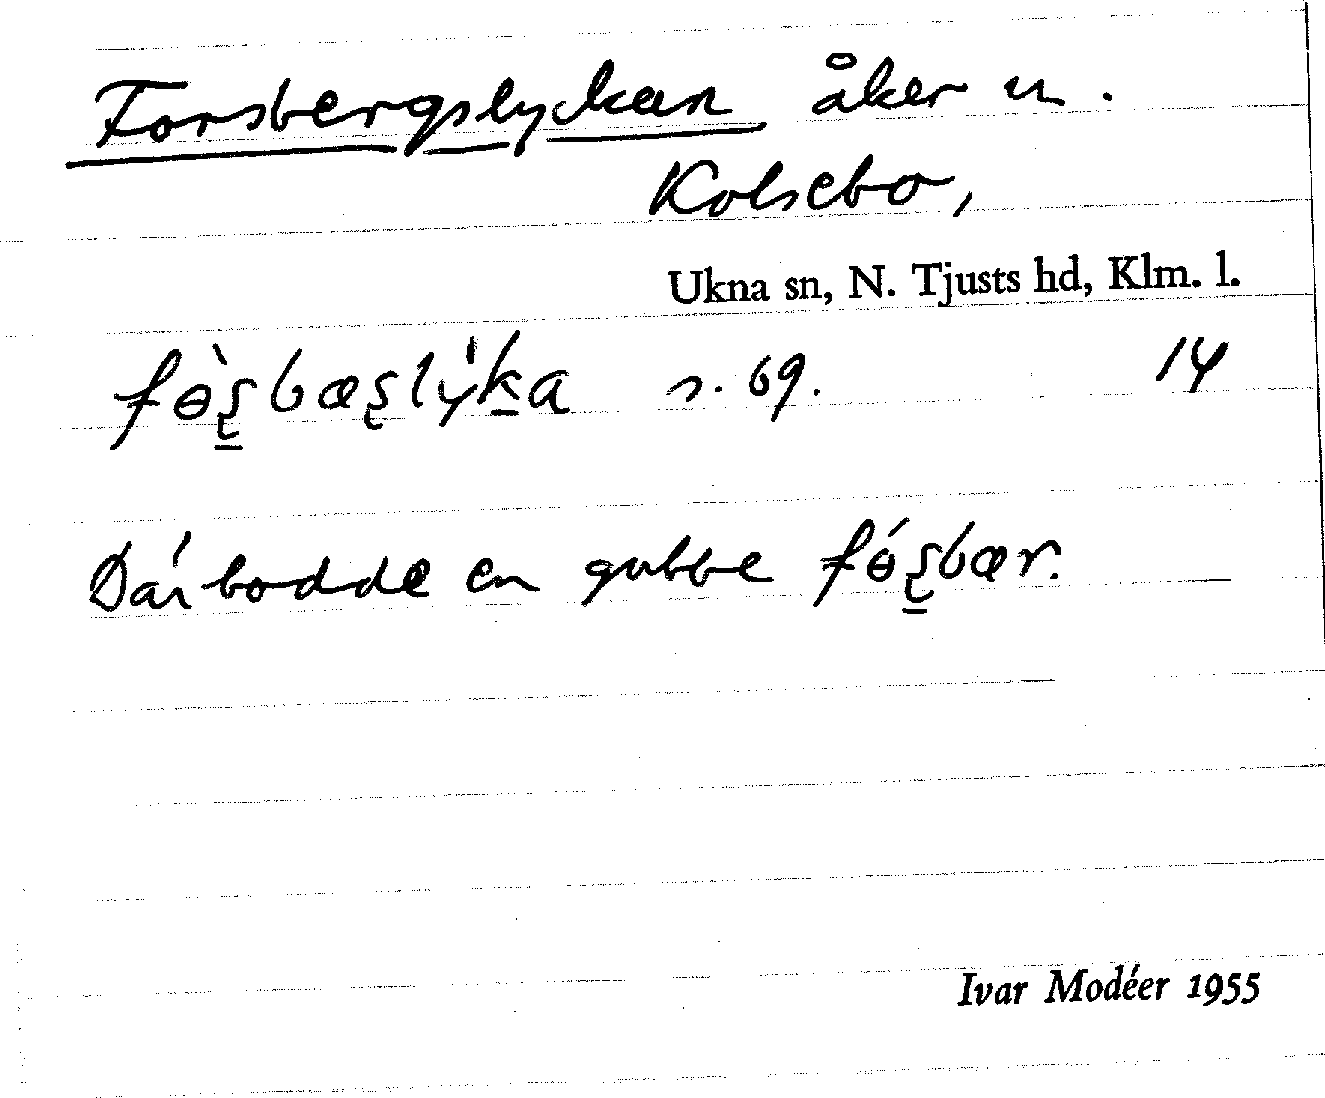 Forsbergslyckan åker u.
Kolsebo,
Ukna sn, N. Tjusts hd, Klm. l.
fɵ̀ʂbæʂlýka s. 69. 14
Där bodde en gubbe fɵ́ʂbær.
Ivar Modéer 1955